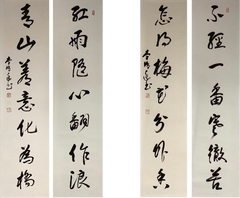 不經一番寒徹苦
怎得梅花分外香
紅雨隨心翻作浪
青山着意化為橋